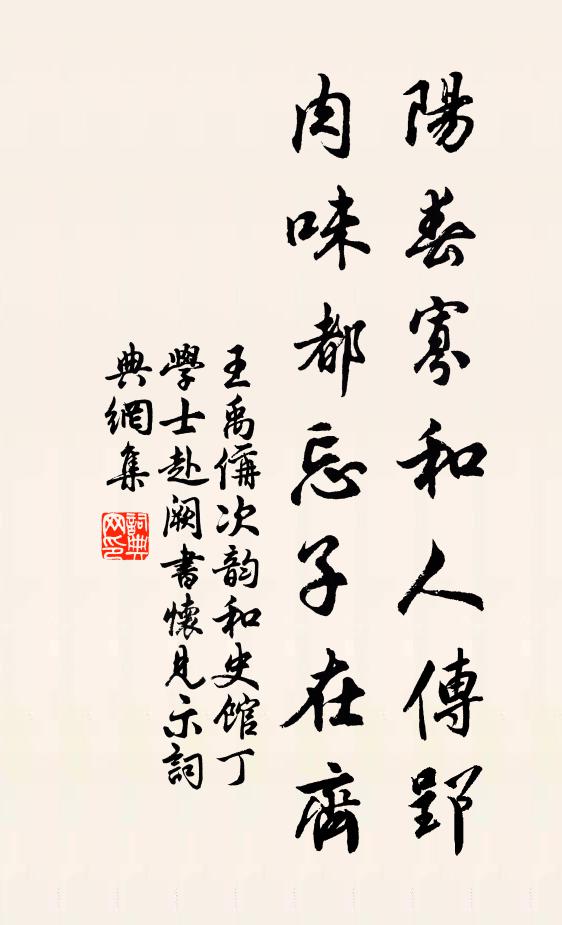 陽春寡和人傳郢
肉味都忘子在齊
王禹偁次韵和史館丁
學士赴闕書懷見示詞
典網集
詞典網印